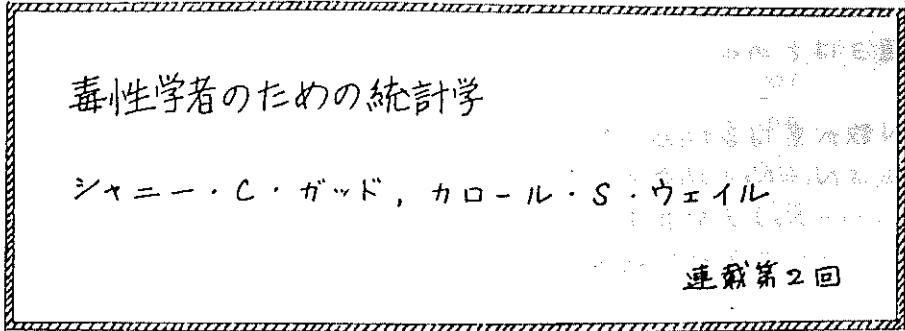 毒性学者のための統計学
シャニー・C・ガッド, カロール・S・ウェイル
連載第2回